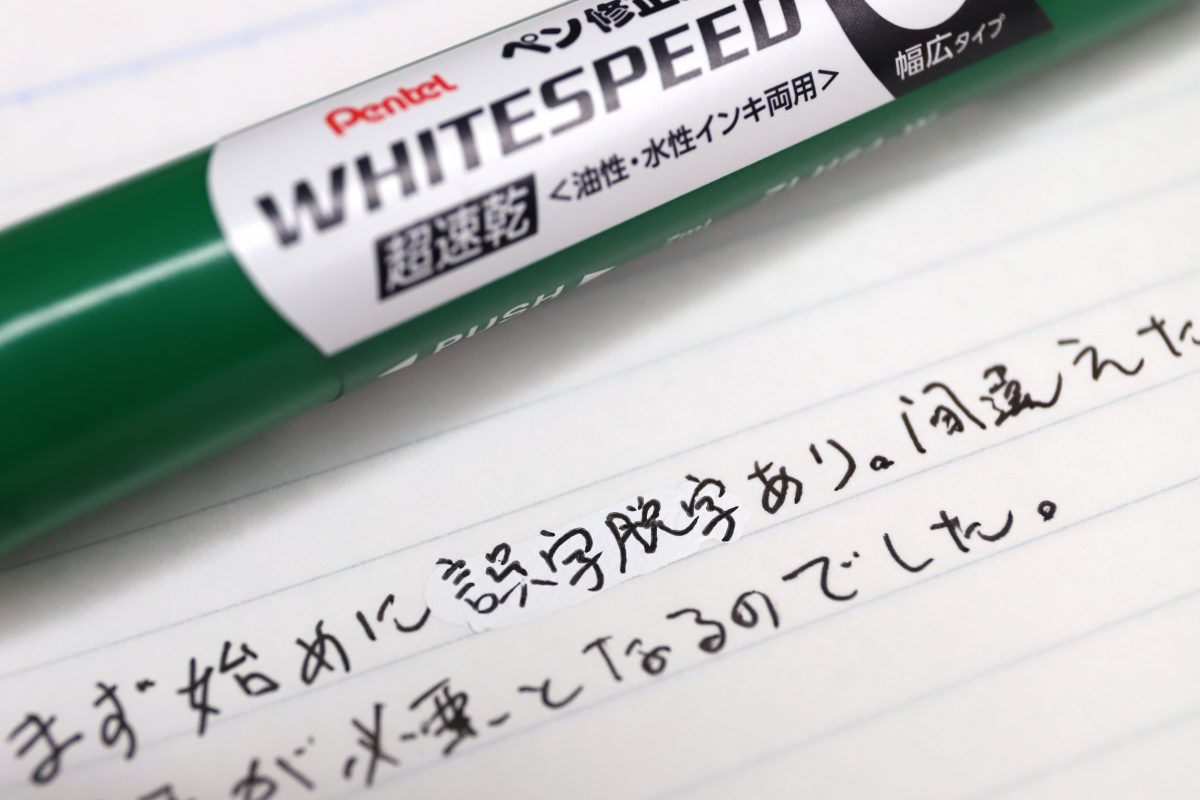 ペン修正
Pentel
WHITESPEED
幅広タイプ
<油性・水性インキ両用>
超速乾
PUSH
7ml
まず始めに誤字脱字あり。間違えた
が必要となるのでした。